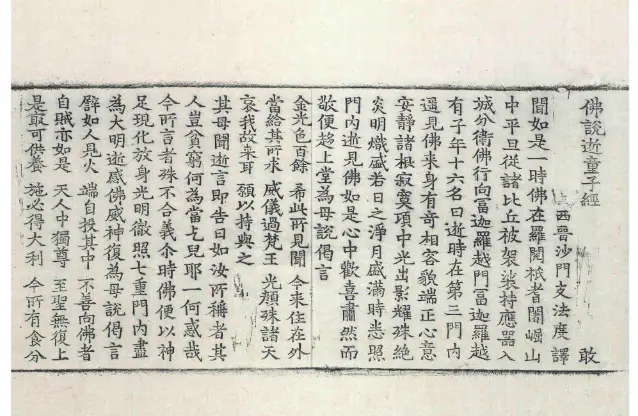 佛説逝童子經 敢
西晉沙門支法度譯
聞如是一時佛在羅閱祇耆闍崛山
中平旦從諸比丘被架裟持應器入
城分衛佛行向富迦羅越門富迦羅越
有子年十六名曰逝時在第三門内
遥見佛来身有竒相容貌端正心意
安静諸根寂寞項中光出影耀殊絶
炎明熾盛若日之淨月盛滿時悉照
門内逝見佛如是心中歡喜肅然而
敬便趍上堂為母説偈言
金光色百餘 希此所見聞 今来住在外
當給其所求 威儀過梵王 光顔殊諸天
哀我故来耳 願以持與之
其母聞逝言即告曰如汝所稱者其
人豈貧窮何為當乞兒耶一何惑哉
今所言者殊不合義尒時佛便以神
足現化放身光明徹照七重門内盡
為大明逝感佛威神復為母説偈言
譬如人見火 端自投其中 不善向佛者
自賊亦如是 天人中獨尊 至聖無復上
是㝡可供養 施必得大利 今所有食分